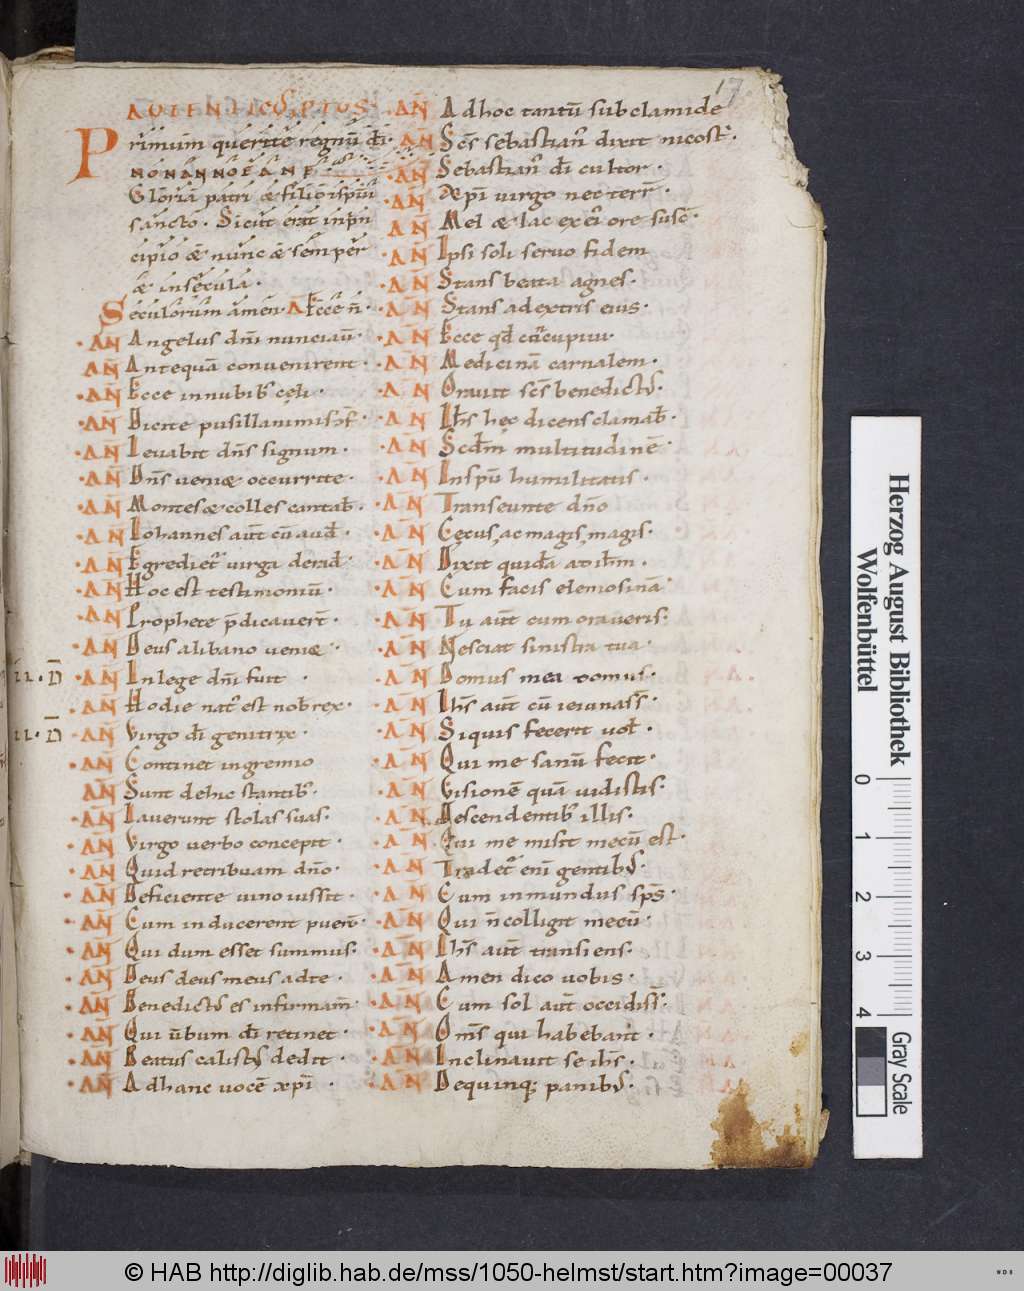 17
AVTENTIC9 PTVS.
Primum querite regnū dī.
NONANNOEANE
Gloria patri & filio & spirii
sancto. Sicut erat inprin
cipio & nunc & semper
& insecula.
Seculorum amen. A Ecce ñ.
·AN Angelus dñi nunciaū.
AN Antequā convenirent.
·AN Ecce innubib; cęli.
·AN Dicite pusillanimis
·AN Levabit dñs signum.
·AN Dñs veni& occurrite.
·AN Montes & colles cantab.
·AN Iohannes aūt cū aud.
·AN Egrediet virga derad.
·AN Hoc est testimoniū.
·AN Prophete p̄dicaver̄t.
·AN Deus alibano veni&.
II. D ·AN Inlege dñi fuit.
·AN Hodie nat' est nob rex.
II. D ·AN Virgo dī genitrix.
·AN Continet ingremio
AN Sunt dehic stantib;
·AN Laverunt stolas suas.
·AN Virgo verbo concepit.
·AN Quid retribuam dño.
·AN Deficiente vino iussit.
·AN Cum inducerent puer̄.
·AN Qui dum esset summus.
·AN Deus deus meus adte.
·AN Benedict9 es infirmam̄.
·AN Qui ūbum dī retinet.
·AN Beatus calist9 dedit.
·AN Adhanc vocē xpī.
·AN Adhoc tantū subclamide
·AN Scs sebastian' dixit nicost.
·AN Sebastian' dī cultor.
·AN &pī virgo nec terr.
AN Mel & lac ex ei' ore susc.
·AN Ipsi soli servo fidem
·AN Stans beata agnes.
·AN Stans adextris eius.
·AN Ecce qd c̄cupivi.
·AN Medicinā carnalem.
·AN Oravit scs benedict9.
·AN Ihs hęc dicens clamab.
·AN Scdm multitudinē
·AN Inspū humilitatis.
·AN Transeunte dño
·AN Cęcus, ac magis, magis.
·AN Dixit quida adihm.
·AN Cum facis elemosinā
·AN Tu aūt cum oraveris.
·AN Nesciat sinistra tua.
·AN Domus mea domus.
·AN Ihs aūt cū ieiunass.
·AN Siquis fecerit vol.
·AN Qui me sanū fecit.
·AN Visionē quā vidistis.
·AN Descendentib; illis.
·AN Qui me misit mecū est.
·AN Tradet' eni gentib9.
·AN Cum inmundus sps.
·AN Qui ñ colligit mecū.
·AN Ihs aūt transiens.
·AN Amen dico vobis.
·AN Cum sol aūt occidiss.
·AN Oms qui habebant.
·AN Inclinavit se ihs.
·AN Dequinq; panib9.
Herzog August Bibliothek
Wolfenbüttel
0 1 2 3 4
Gray Scale
© HAB http://diglib.hab.de/mss/1050-helmst/start.htm?image=00037